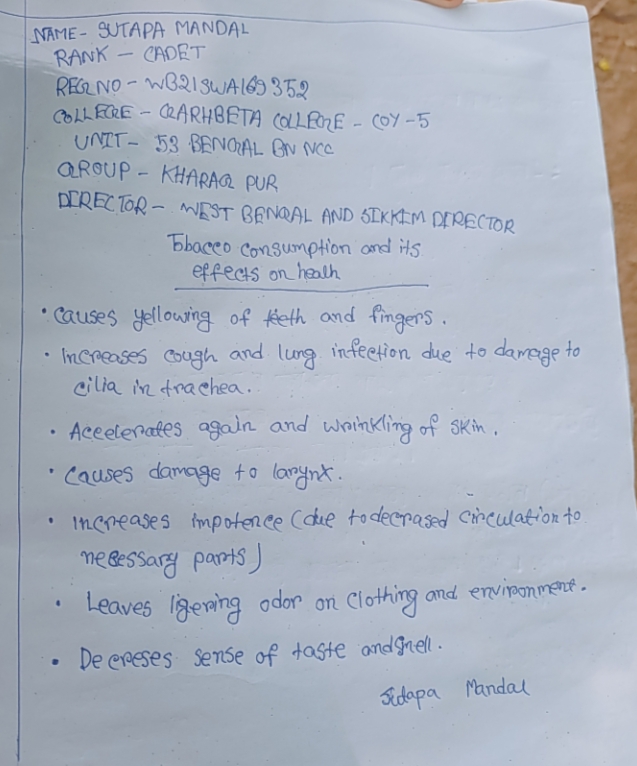 NAME- SUTAPA MANDAL
RANK - CADET
REG NO - WB21SWA169352
COLLEGE - GARHBETA COLLEGE - COY-5
UNIT- 53 BENGAL BN NCC
GROUP - KHARAG PUR
DIRECTOR - WEST BENGAL AND SIKKIM DIRECTOR
Tobacco consumption and its
effects on heath
• causes yellowing of teeth and fingers.
• Increases cough and lung infection due to damage to
cilia in trachea.
• Accelerates again and wrinkling of skin.
• Causes damage to larynx.
• increases impotence (due to decrased circulation to
necessary parts)
• Leaves ligering odor on clothing and environment.
• Decreses sense of taste and smell.
Sutapa Mandal